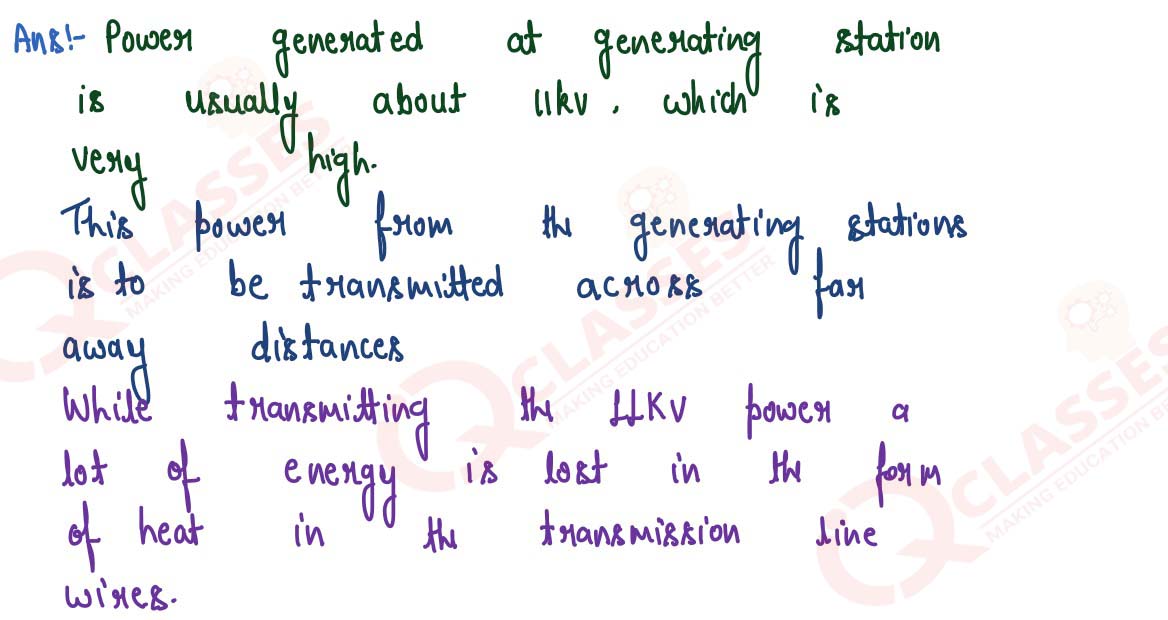 Ans!- Power generated at generating station
is usually about 11kv. which is
very high.
This power from the generating stations
is to be transmitted across far
away distances
While transmitting the 11KV power a
lot of energy is lost in the form
of heat in the transmission line
wires.
CLASSES
MAKING EDUCATION BETTER
CLASSES
MAKING EDUCATION BETTER
CLASSES
MAKING EDUCATION B